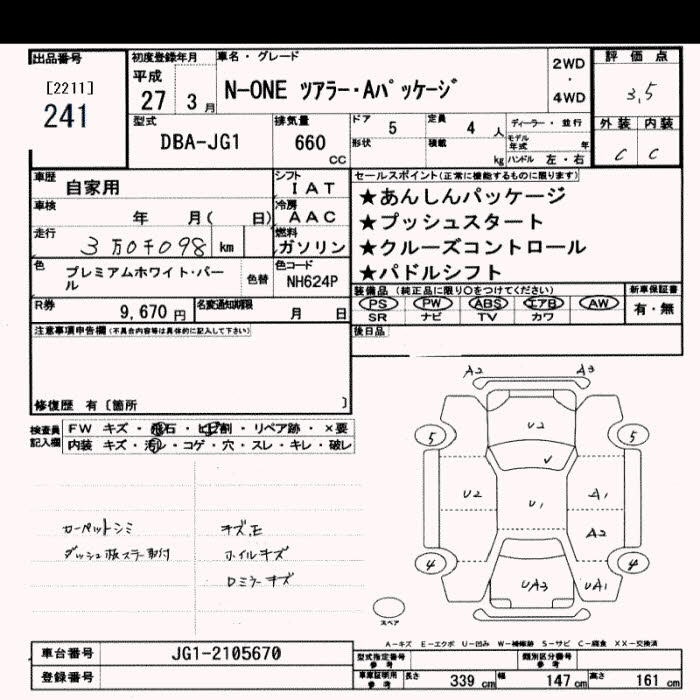 出品番号
[2211]
241
初度登録年月
平成
27 3 月
車名・グレード
N-ONE ツアラー・Aパッケージ
2WD
・
4WD
評価点
3.5
外装 内装
C C
型式
DBA-JG1
排気量
660
CC
ドア 5
定員 4 人
形状
積載 kg
ディーラー・並行
モデル年式 年
ハンドル 左・右
車歴
自家用
シフト
IAT
車検
年 月( 日)
冷房
AAC
走行
3万0千098 km
燃料
ガソリン
色
プレミアムホワイト・パール
色替
色コード
NH624P
R券
9,670 円
名変通知期限
月 日
セールスポイント(正常に機能するものに限ります)
★あんしんパッケージ
★プッシュスタート
★クルーズコントロール
★パドルシフト
装備品(純正品に限り○をつけてください)
PS PW ABS エアB AW
SR ナビ TV カワ
新車保証書
有・無
後日品
注意事項申告欄(不具合内容等は具体的に記入して下さい)
修復歴 有〔箇所 〕
検査員記入欄
FW キズ・飛石・ヒビ割・リペア跡・×要
内装 キズ・汚レ・コゲ・穴・スレ・キレ・破レ
カーペットシミ
キズ、エ
ホイルキズ
Dミラーキズ
A2 A3
5 5
U2
V
U2 U1 A1
A2
4 4
UA3 UA1
スペア
A-キズ E-エクボ U-凹み W-補修跡 S-サビ C-腐食 XX-交換済
車台番号
JG1-2105670
登録番号
型式指定番号
参考
類別区分番号
参考
車庫証明用
参考
長さ 339 cm
幅 147 cm
高さ 161 cm